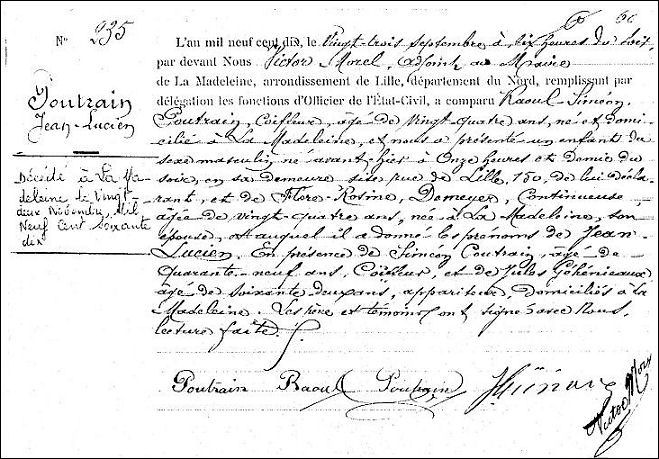 60 60
N° 235
Poutrain
Jean-Lucien
Décédé à La Ma-
deleine le Vingt-
deux Décembre Mil
Neuf Cent Soixante
dix
L'an mil neuf cent dix, le vingt-trois septembre à six heures du soir
par devant Nous Victor Morel, adjoint au Maire
de La Madeleine, arrondissement de Lille, département du Nord, remplissant par
délégation les fonctions d'Officier de l'Etat-Civil, a comparu Raoul-Siméon
Poutrain, Coiffeur, âgé de vingt-quatre ans, né et domi-
cilié à La Madeleine, et nous a présenté un enfant du
sexe masculin né avant-hier à Onze heures et demie du
soir, en sa demeure sise rue de Lille, 150, de lui décla-
rant, et de Flore-Rosine, Demeyer, Continueuse,
âgée de vingt-quatre ans, née à La Madeleine, son
épouse, et auquel il a donné les prénoms de Jean-
Lucien. En présence de Siméon Poutrain, âgé de
Quarante-neuf ans, Coiffeur, et de Jules
âgé de soixante deux ans, appariteur, domiciliés à La
Madeleine. Les père et témoins ont signé avec Nous,
lecture faite.
Poutrain Raoul Poutrain
Victor Morel